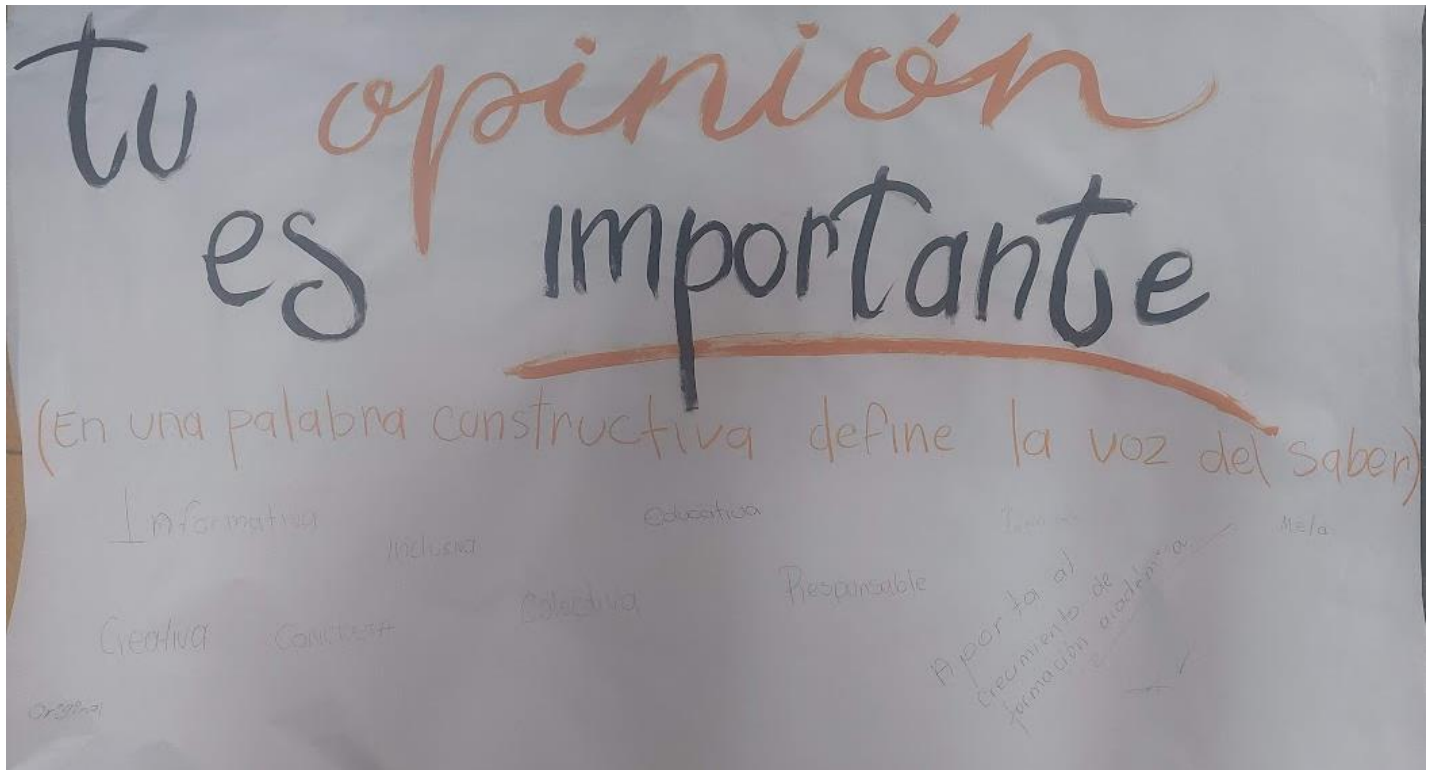 tu opinión
es importante
(En una palabra constructiva define la voz del saber)
Informativa
educativa
inclusiva
Colectiva
Responsable
Creativa
Aporta al
crecimiento de
formación académica
Original